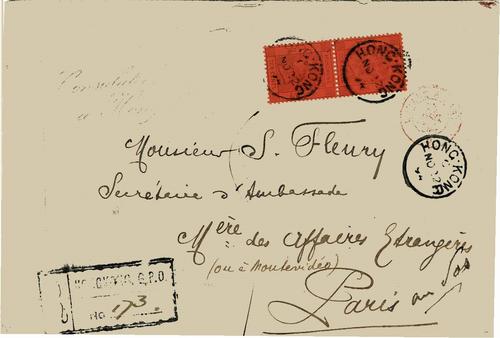 Consulat
à Hong
HONG-KONG
HONG-KONG
HONG-KONG
NO 22
94
Monsieur S. Fleury
Secrétaire d'Ambassade
Mère des Affaires Etrangères
(ou à Montevideo)
Paris
G.P.O.
No. 173.